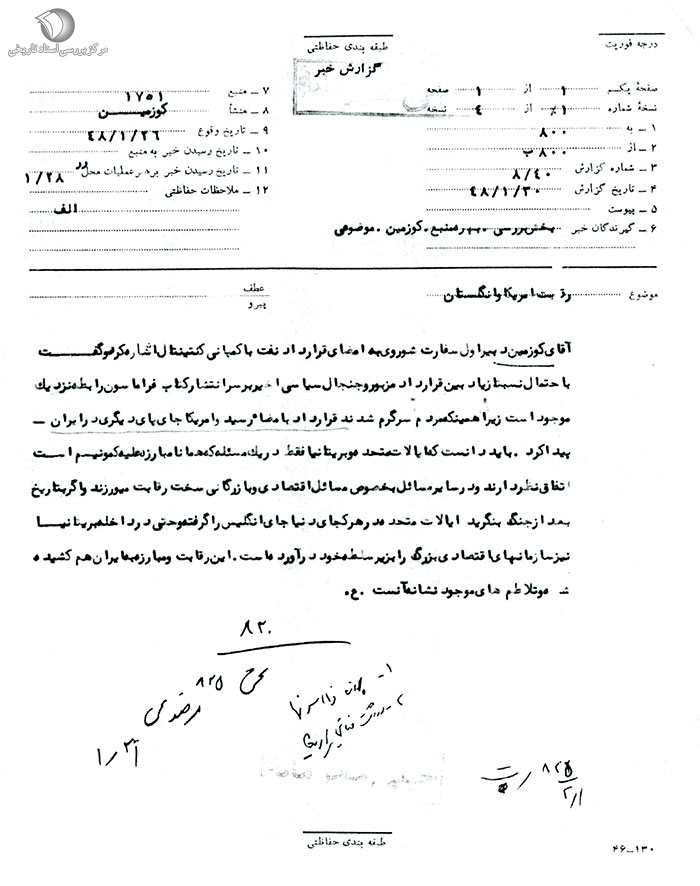 مرکز بررسی اسناد تاریخی
درجه فوریت
طبقه بندی حفاظتی
گزارش خبر
صفحهٔ یکم ۱ از ۱ صفحه
نسخهٔ شماره ۱٪ از ٤ نسخه
۱ ــ به ۸۰۰
۲ ــ از ۸۰۰ب
۳ ــ شماره گزارش ۸/٤۰
۴ ــ تاریخ گزارش ٤۸/۱/۳۰
۵ ــ پیوست
۶ ــ گیرندگان خبر بخش بررسی ـ بهره منبع ـ کوزمین ـ موضوعی
۷ ــ منبع ۱۷۵۱
۸ ــ منشأ کوزمیــــن
۹ ــ تاریخ وقوع ٤۸/۱/۲۶
۱۰ ــ تاریخ رسیدن خبر به منبع
۱۱ ــ تاریخ رسیدن خبر برهبر عملیات محل در ۱/۲۸
۱۲ ــ ملاحظات حفاظتی
الف
موضوع رقابت امریکا و انگلستان
عطف
پیرو
آقای کوزمین دبیر اول سفارت شوروی به امضای قرارداد نفت با کمپانی کنتیننتال اشاره کرد و گفــــت
با حتمال نسبتا زیاد بین قرارداد مزبور و جنجال سیاسی اخیر بر سر انتشار کتاب فراماسون رابطه نزدیك
موجود است زیرا همینکه مردم سرگرم شدند قرارداد با مضاء رسید و امریکا جای پای دیگری در ایران ــ
پیدا کرد . باید دانست که ایالات متحده و بریتانیا فقط در یك مسئله که همانا مبارزه علیه کمونیسم است
اتفاق نظر دارند و در سایر مسائل بخصوص مسائل اقتصادی و بازرگانی سخت رقابت میورزند و اگر بتاریخ
بعد از جنگ بنگرید ایالات متحده در هر کجای دنیا جای انگلیس را گرفته و حتی در داخله بریتانیــا
نیز سازمانهای اقتصادی بزرگ را بزیر سلطه خود در آورده است . این رقابت و مبارزه به ایران هم کشیده
شده و تلاطم های موجود نشانه آنست . ع .
۸۲۰
۸۲۵
۱ــ
۲ــ
۸۲۵
طبقه بندی حفاظتی
۱۳۰ــ۴۶